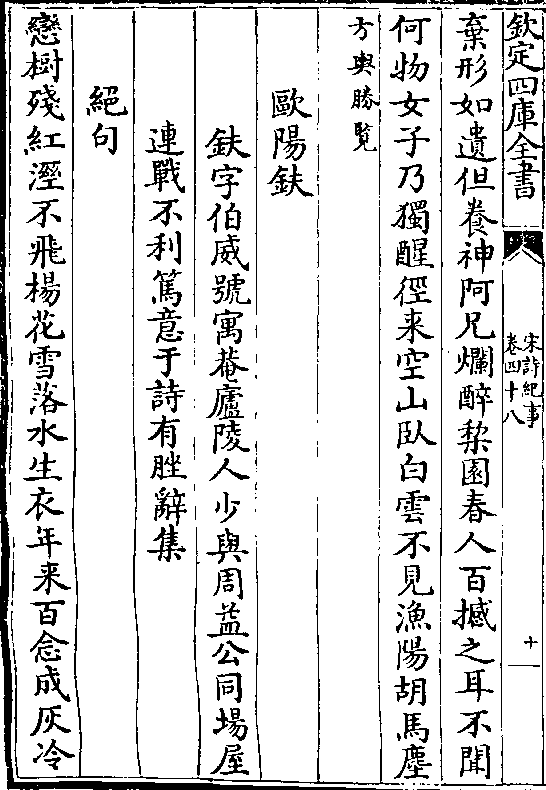 欽定四庫全書
宋詩紀事
卷四十八
十
棄形如遺但養神阿兄爛醉棃園春人百撼之耳不聞
何物女子乃獨醒徑来空山臥白雲不見漁陽胡馬塵
方輿勝覧
歐陽鈇
鈇字伯威號寓菴廬陵人少與周益公同塲屋
連戰不利篤意于詩有脞辭集
絕句
戀樹殘紅溼不飛楊花雪落水生衣年来百念成灰冷